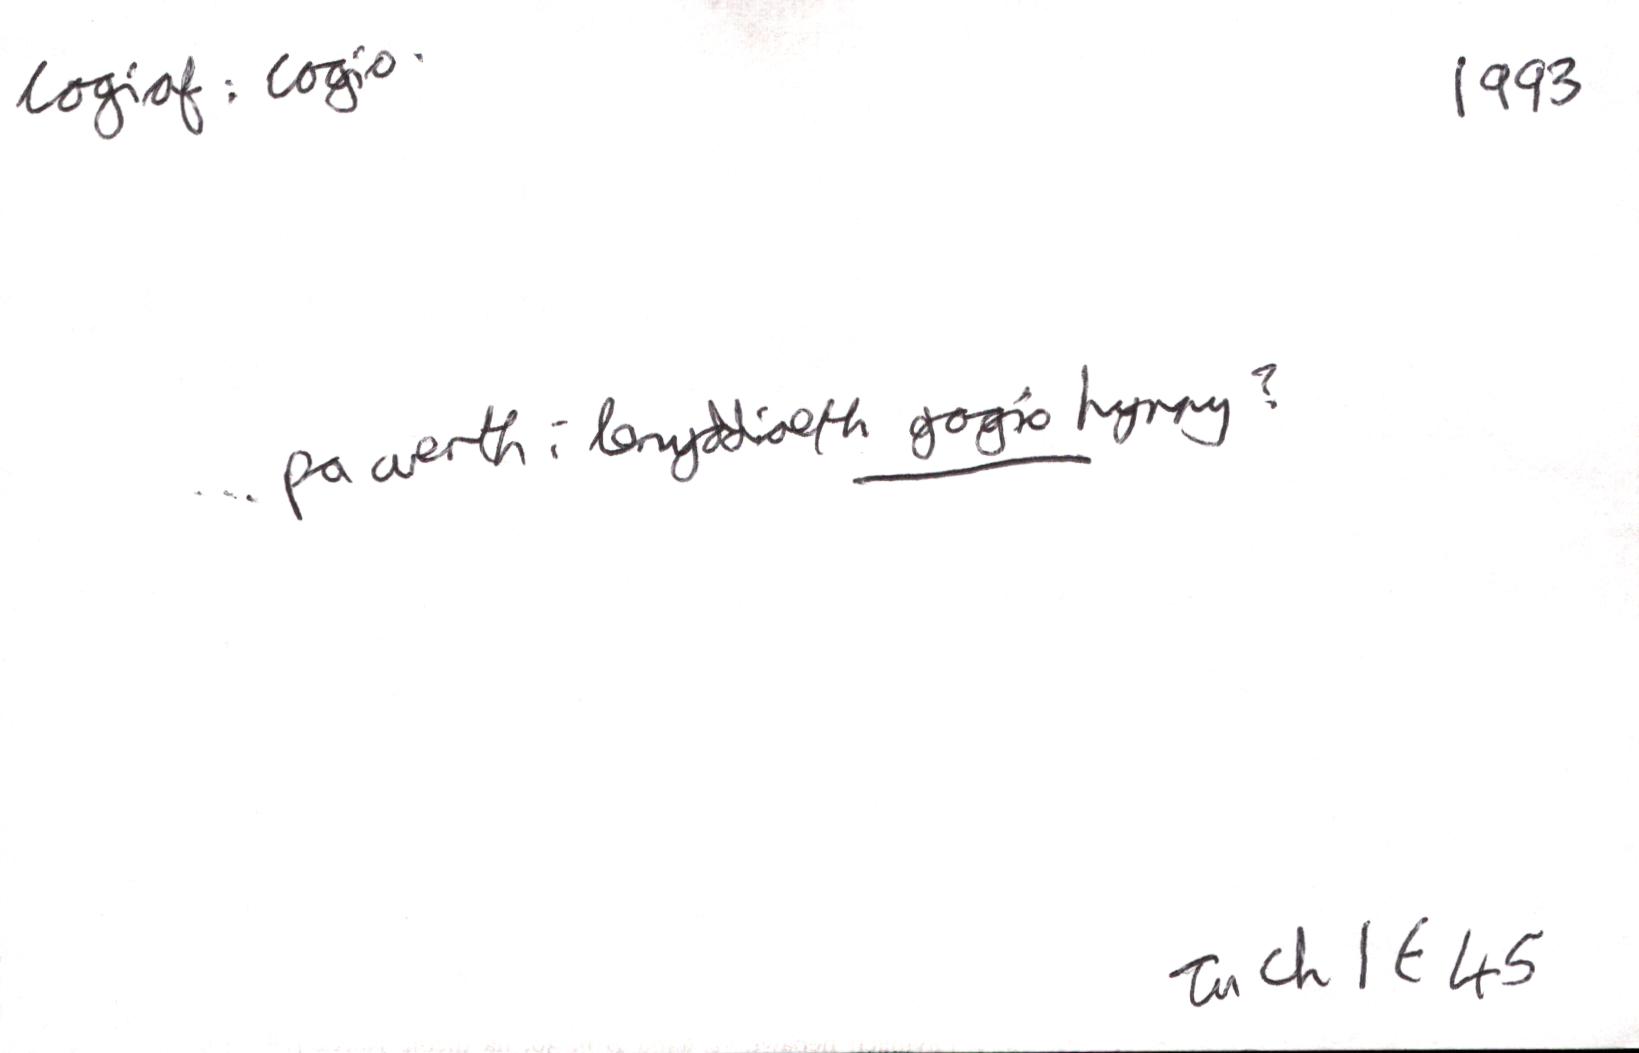 cogiaf : cogio. 1993
... pa werth i lenyddiaeth gogio hynny?
Tu Ch I E 45